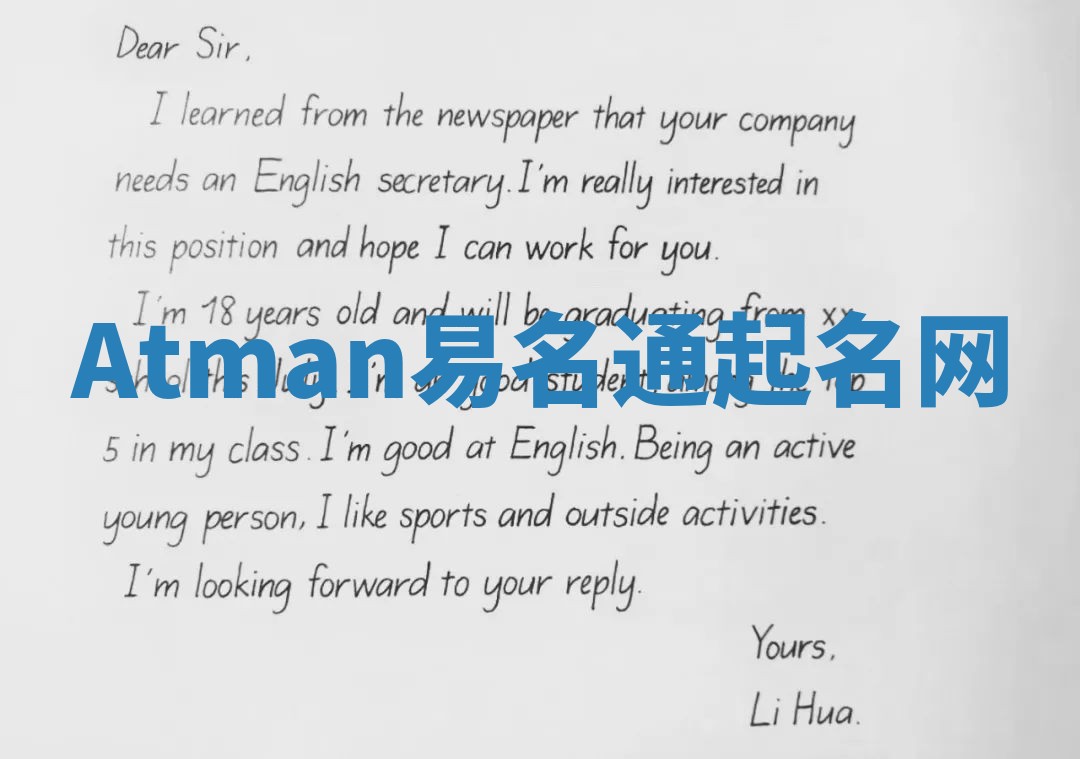 Dear Sir,
I learned from the newspaper that your company
needs an English secretary. I'm really interested in
this position and hope I can work for you.
I'm 18 years old and will be graduating from xx
Atman易名通起名网
school this July. I'm a good student, among the top
5 in my class. I'm good at English. Being an active
young person, I like sports and outside activities.
I'm looking forward to your reply.
Yours,
Li Hua.